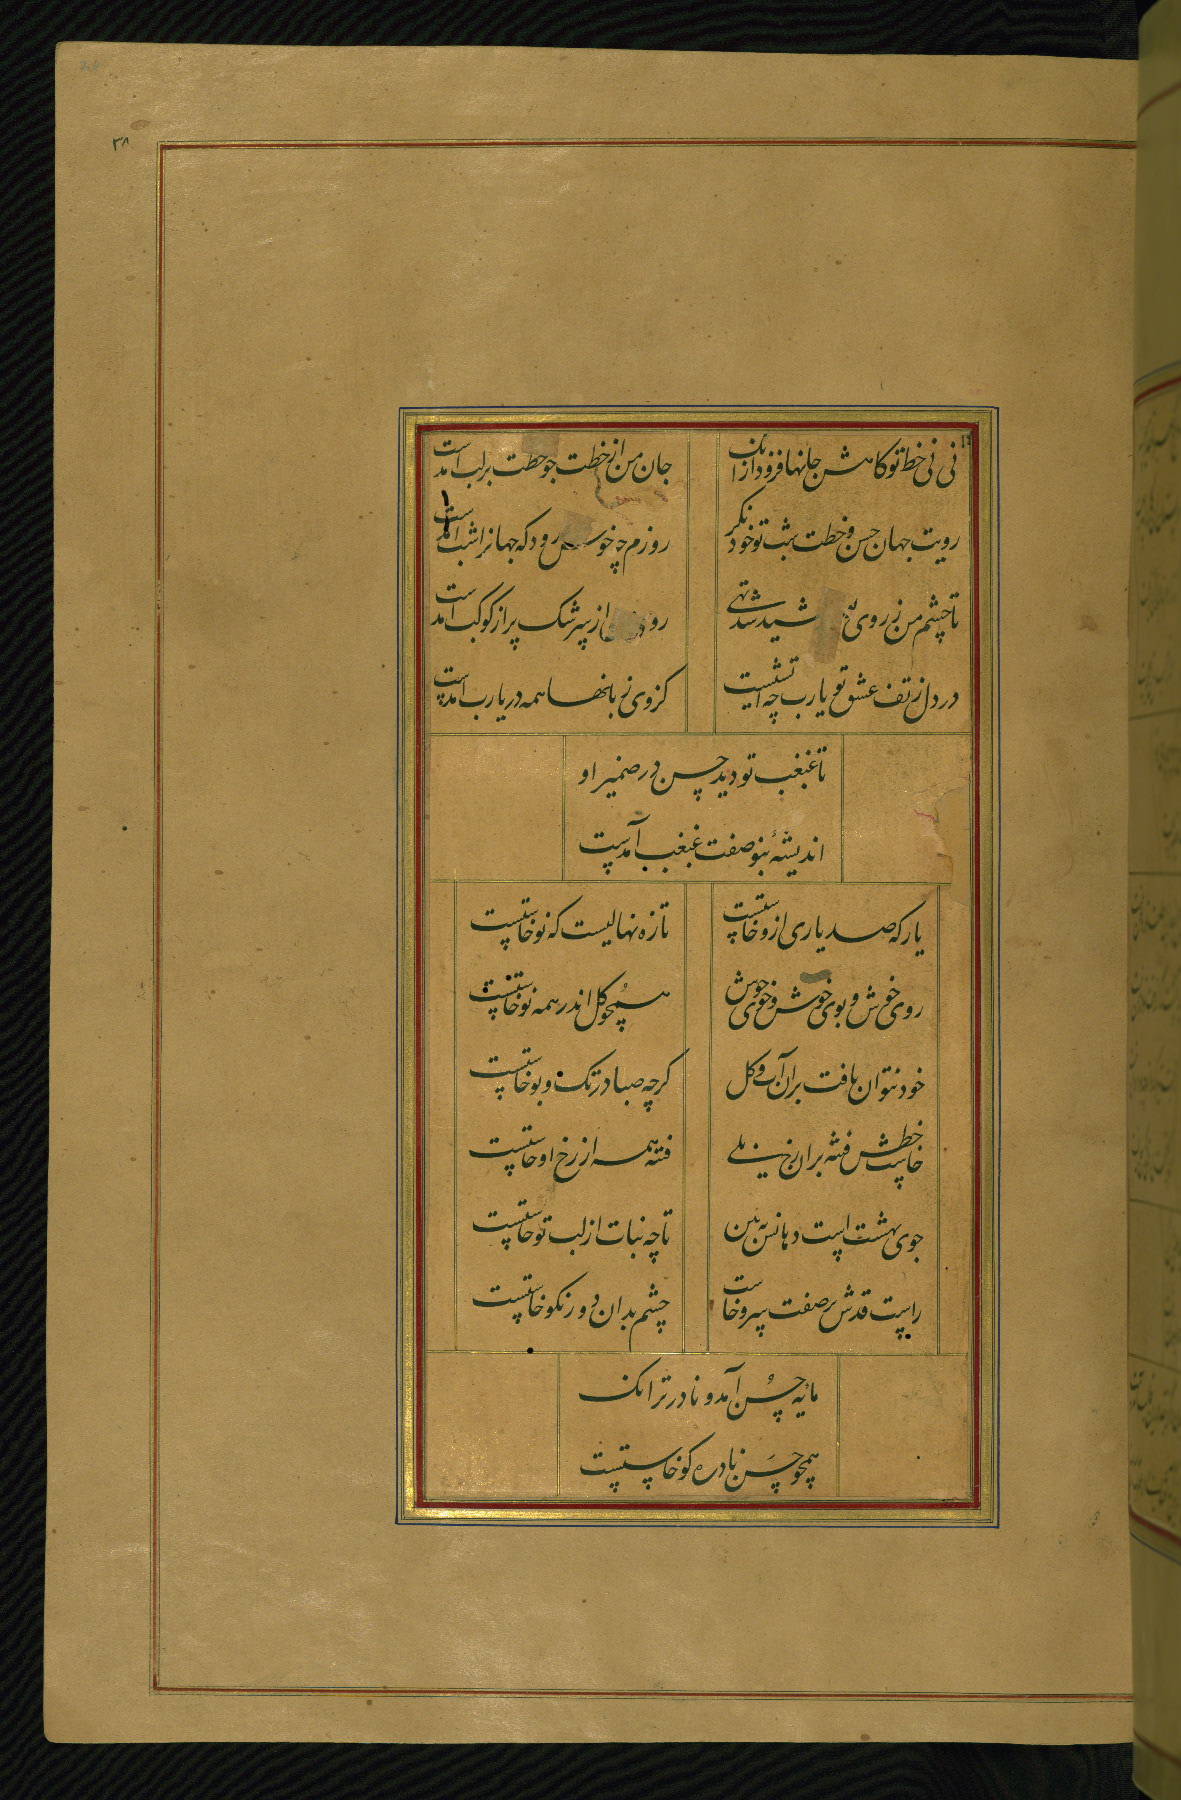 ۳۸
نی نی خط تو کاهش جانها فزود ازانک
جان من از خطت چو خطت بر لب آمدست
رویت جهان حسن و خطت شب تو خود نگر
روزم چه خوش رود که جهانرا شب آمدست
تا چشم من ز روی شید شد تهی
رو از سرشک پر از کوکب آمدست
در دل ز تف عشق تو یارب چه آتشیست
کز وی زبانها همه در یارب آمدست
تا غبغب تو دید حسن در ضمیر او
اندیشهٔ بنو صفت غبغب آمدست
یار که صد یاری ازو خاستست
تازه نهالیست که نو خاستست
روی خوش و بوی خوش و خوی خوش
همچو گل اندر همه نو خاستست
خود نتوان یافت بران آب و گل
گرچه صبا در تک و بو خاستست
خطش خاست فتنه بران رخ بلی
فتنه همه از رخ او خاستست
جوی بهشت است دهانش ببین
تا چه نبات از لب تو خاستست
راست قدش بر صفت سرو خاست
چشم بدان دور نکو خاستست
مایه حسن آمد و نادر ترانک
همچو حسن نادره گو خاستست